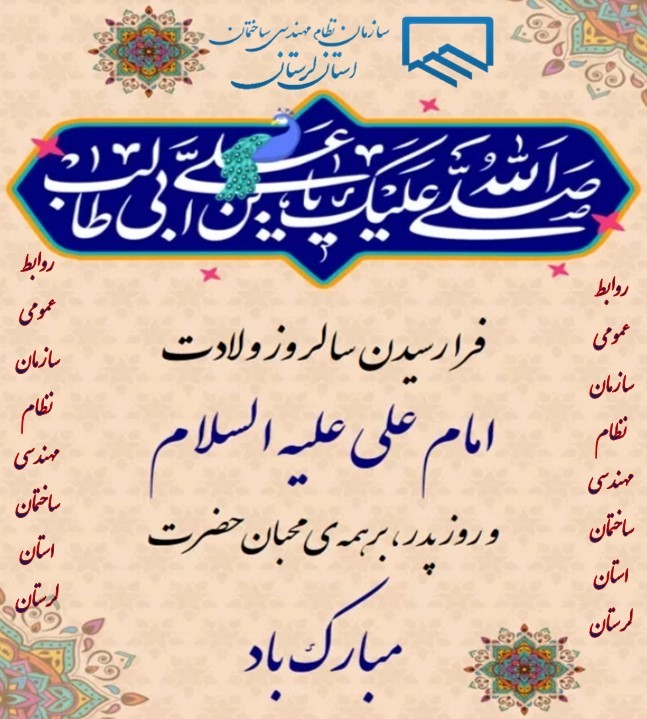 سازمان نظام مهندسی ساختمان
استان لرستان
صلی الله علیک یا علی بن ابی طالب
فرارسیدن سالروز ولادت
امام علی علیه السلام
و روز پدر، بر همه‌ی محبان حضرت
مبارک باد
روابط
عمومی
سازمان
نظام
مهندسی
ساختمان
استان
لرستان
روابط
عمومی
سازمان
نظام
مهندسی
ساختمان
استان
لرستان